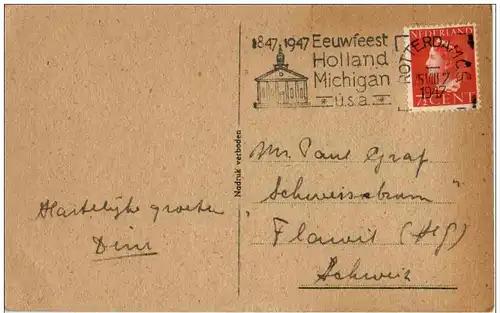 1847 1947 Eeuwfeest
Holland
Michigan
u.s.a.
NEDERLAND
ROTTERDAM C.S
1947
7½ CENT
Nadruk verboden
Mr. Paul Graf
"Flawil (
Schweiz
Hartelijke groeten